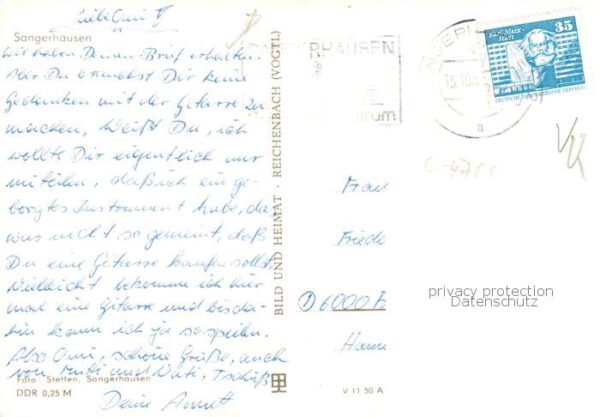 Liebe Omi!
Sangerhausen
Wir haben Deinen Brief erhalten.
Aber Du brauchst Dir keine
Gedanken mit der Gitarre zu
machen, Weißt Du, ich
wollte Dir eigentlich nur
mitteilen, daß ich ein ge-
borgtes Instrument habe, das
war nicht so gemeint, daß
Du eine Gitarre kaufen sollst.
Vielleicht bekomme ich hier
mal eine Gitarre und bis da-
hin kann ich ja so spielen.
Also Omi, schöne Grüße, auch
von Mutti und Vati, Tschüß
Deine Annett
Foto: Stetten, Sangerhausen
DDR 0,25 M
BILD UND HEIMAT · REICHENBACH (VOGTL)
HAUSEN
35
Karl-Marx-
Stadt
DEUTSCHE DEMOKRATISCHE REPUBLIK
a
Frau
Friede
D 6000 F
Hann
privacy protection
Datenschutz
V 11 50 A